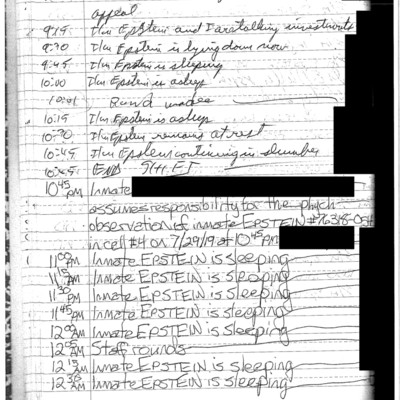 appeal
9:15 I/m Epstein and I are talking investments
9:30 I/m Epstein is lying down now
9:45 I/m Epstein is sleeping
10:00 I/m Epstein is asleep
10:01 Round made
10:15 I/m Epstein is asleep
10:30 I/m Epstein remains at rest
10:45 I/m Epstein continuing in slumber
END SHIFT
10:45 PM Inmate
assumes responsibility for the phych
observation of inmate EPSTEIN #76318-054
in cell #4 on 7/29/19 at 10:45 PM
11:00 PM Inmate EPSTEIN is sleeping
11:15 PM Inmate EPSTEIN is sleeping
11:30 PM Inmate EPSTEIN is sleeping
11:45 PM Inmate EPSTEIN is sleeping
12:00 AM Inmate EPSTEIN is sleeping
12:05 AM Staff rounds
12:15 AM Inmate EPSTEIN is sleeping
12:30 AM Inmate EPSTEIN is sleeping